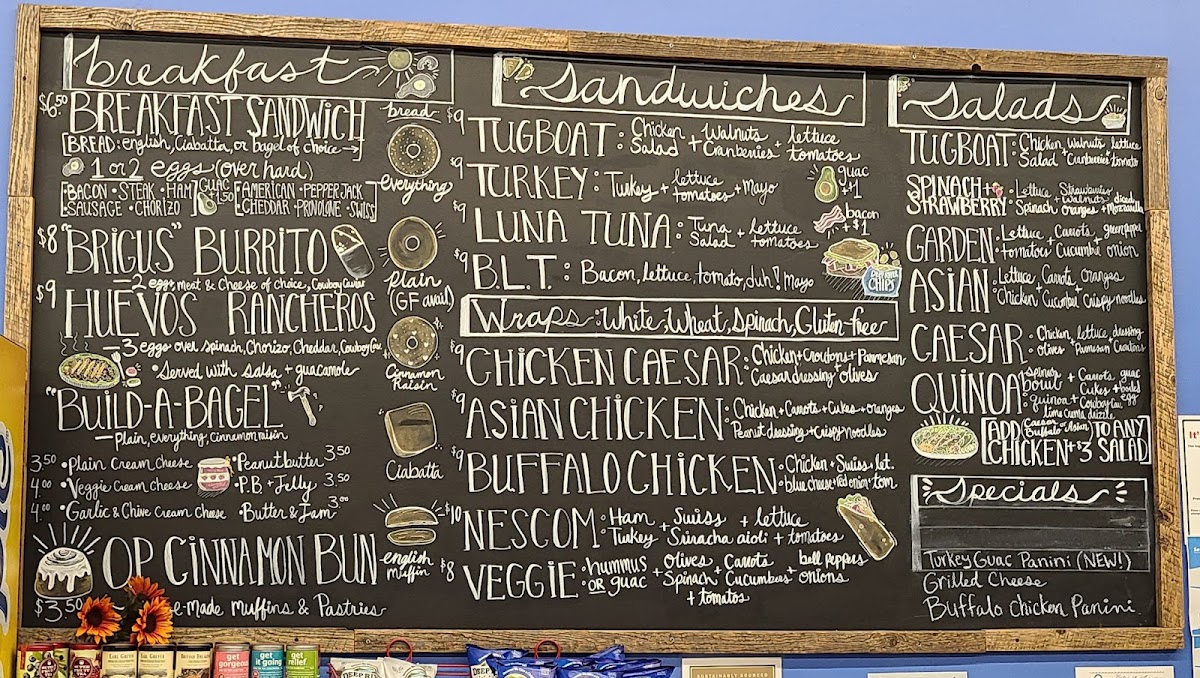 breakfast
$6.50 BREAKFAST SANDWICH
BREAD: english, Ciabatta, or bagel of choice →
1 or 2 eggs (over hard)
BACON · STEAK · HAM
SAUSAGE · CHORIZO
GUAC
$1.50
AMERICAN · PEPPERJACK
CHEDDAR · PROVOLONE · SWISS
$8 "BRIGUS" BURRITO
— 2 eggs, meat & Cheese of choice, Cowboy Caviar
$9 HUEVOS RANCHEROS
— 3 eggs over spinach, Chorizo, Cheddar, Cowboy Cav.
Served with salsa + guacamole
"BUILD-A-BAGEL"
— Plain, everything, cinnamon raisin
3.50 · Plain Cream cheese
4.00 · Veggie Cream cheese
4.00 · Garlic & Chive Cream Cheese
· Peanut butter 3.50
· P.B. + Jelly 3.50
· Butter & Jam 3.00
OP CINNAMON BUN
$3.50
-made Muffins & Pastries
bread
everything
Plain
(GF avail)
Cinnamon
Raisin
Ciabatta
english
muffin
Sandwiches
$9 TUGBOAT: Chicken Salad + Walnuts + Cranberries + lettuce tomatoes
$9 TURKEY: Turkey + lettuce tomatoes + Mayo
guac
+$1
$9 LUNA TUNA: Tuna Salad + lettuce tomatoes
bacon
+$1
$9 B.L.T.: Bacon, lettuce, tomato, duh! Mayo
DEEP RIVER
CHIPS
Wraps: White, Wheat, Spinach, Gluten-free
$9 CHICKEN CAESAR: Chicken + Croutons + Parmesan
Caesar dressing + olives
$9 ASIAN CHICKEN: Chicken + Carrots + Cukes + oranges
Peanut dressing + Crispy noodles
$9 BUFFALO CHICKEN: Chicken + Swiss + let.
blue cheese + Red onion + tom
$10 NESCOM: Ham + Swiss + lettuce
Turkey Sriracha aioli + tomatoes
$8 VEGGIE: hummus OR guac + olives Spinach + Carrots Cucumbers + bell peppers onions
+ tomatos
Salads
TUGBOAT: Chicken, Walnuts, lettuce
Salad + Cranberries tomato
SPINACH + STRAWBERRY: Lettuce, Strawberries
Spinach oranges + Walnuts diced Mozzarella
GARDEN: Lettuce, Carrots, green pepper
tomatoes Cucumber onion
ASIAN: Lettuce, Carrots, oranges
Chicken, Cucumber, Crispy noodles
CAESAR: Chicken, lettuce, dressing
olives Parmesan Croutons
QUINOA bowl: spinach + Carrots + guac
quinoa + Cukes + boiled egg
Cowboy Cav.
lime crema drizzle
ADD Caesar Buffalo or Asian TO ANY
CHICKEN +$3 SALAD
Specials
Turkey Guac Panini (NEW!)
Grilled Cheese
Buffalo Chicken Panini
EARL GREYER
EARL GREYER
get
gorgeous
get
it going
get
relief
DEEP RIVER
DEEP
SUSTAINABLY SOURCED